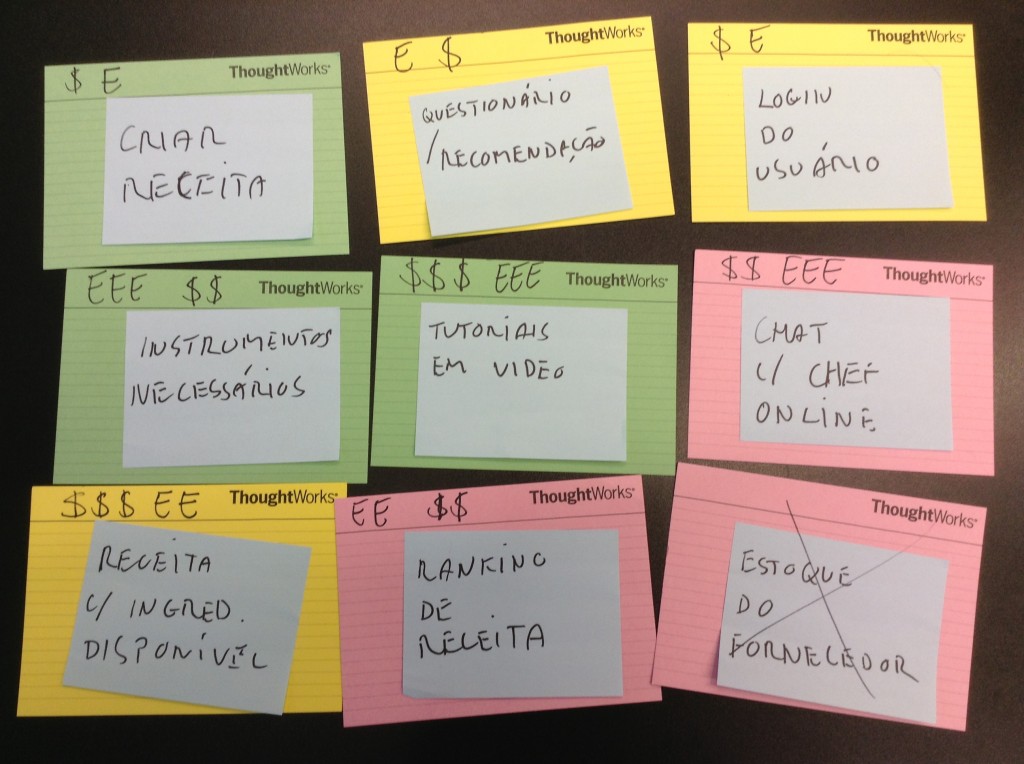 $ E ThoughtWorks®
CRIAR
RECEITA
E $ ThoughtWorks®
QUESTIONÁRIO
/RECOMENDAÇÃO
$ E ThoughtWorks®
LOGIN
DO
USUÁRIO
EEE $$ ThoughtWorks®
INSTRUMENTOS
NECESSÁRIOS
$$$ EEE ThoughtWorks®
TUTORIAIS
EM VIDEO
$$ EEE ThoughtWorks®
CHAT
C/ CHEF
ONLINE
$$$ EE ThoughtWorks®
RECEITA
C/ INGRED.
DISPONÍVEL
EE $$ ThoughtWorks®
RANKING
DE
RECEITA
ThoughtWorks®
ESTOQUE
DO
FORNECEDOR